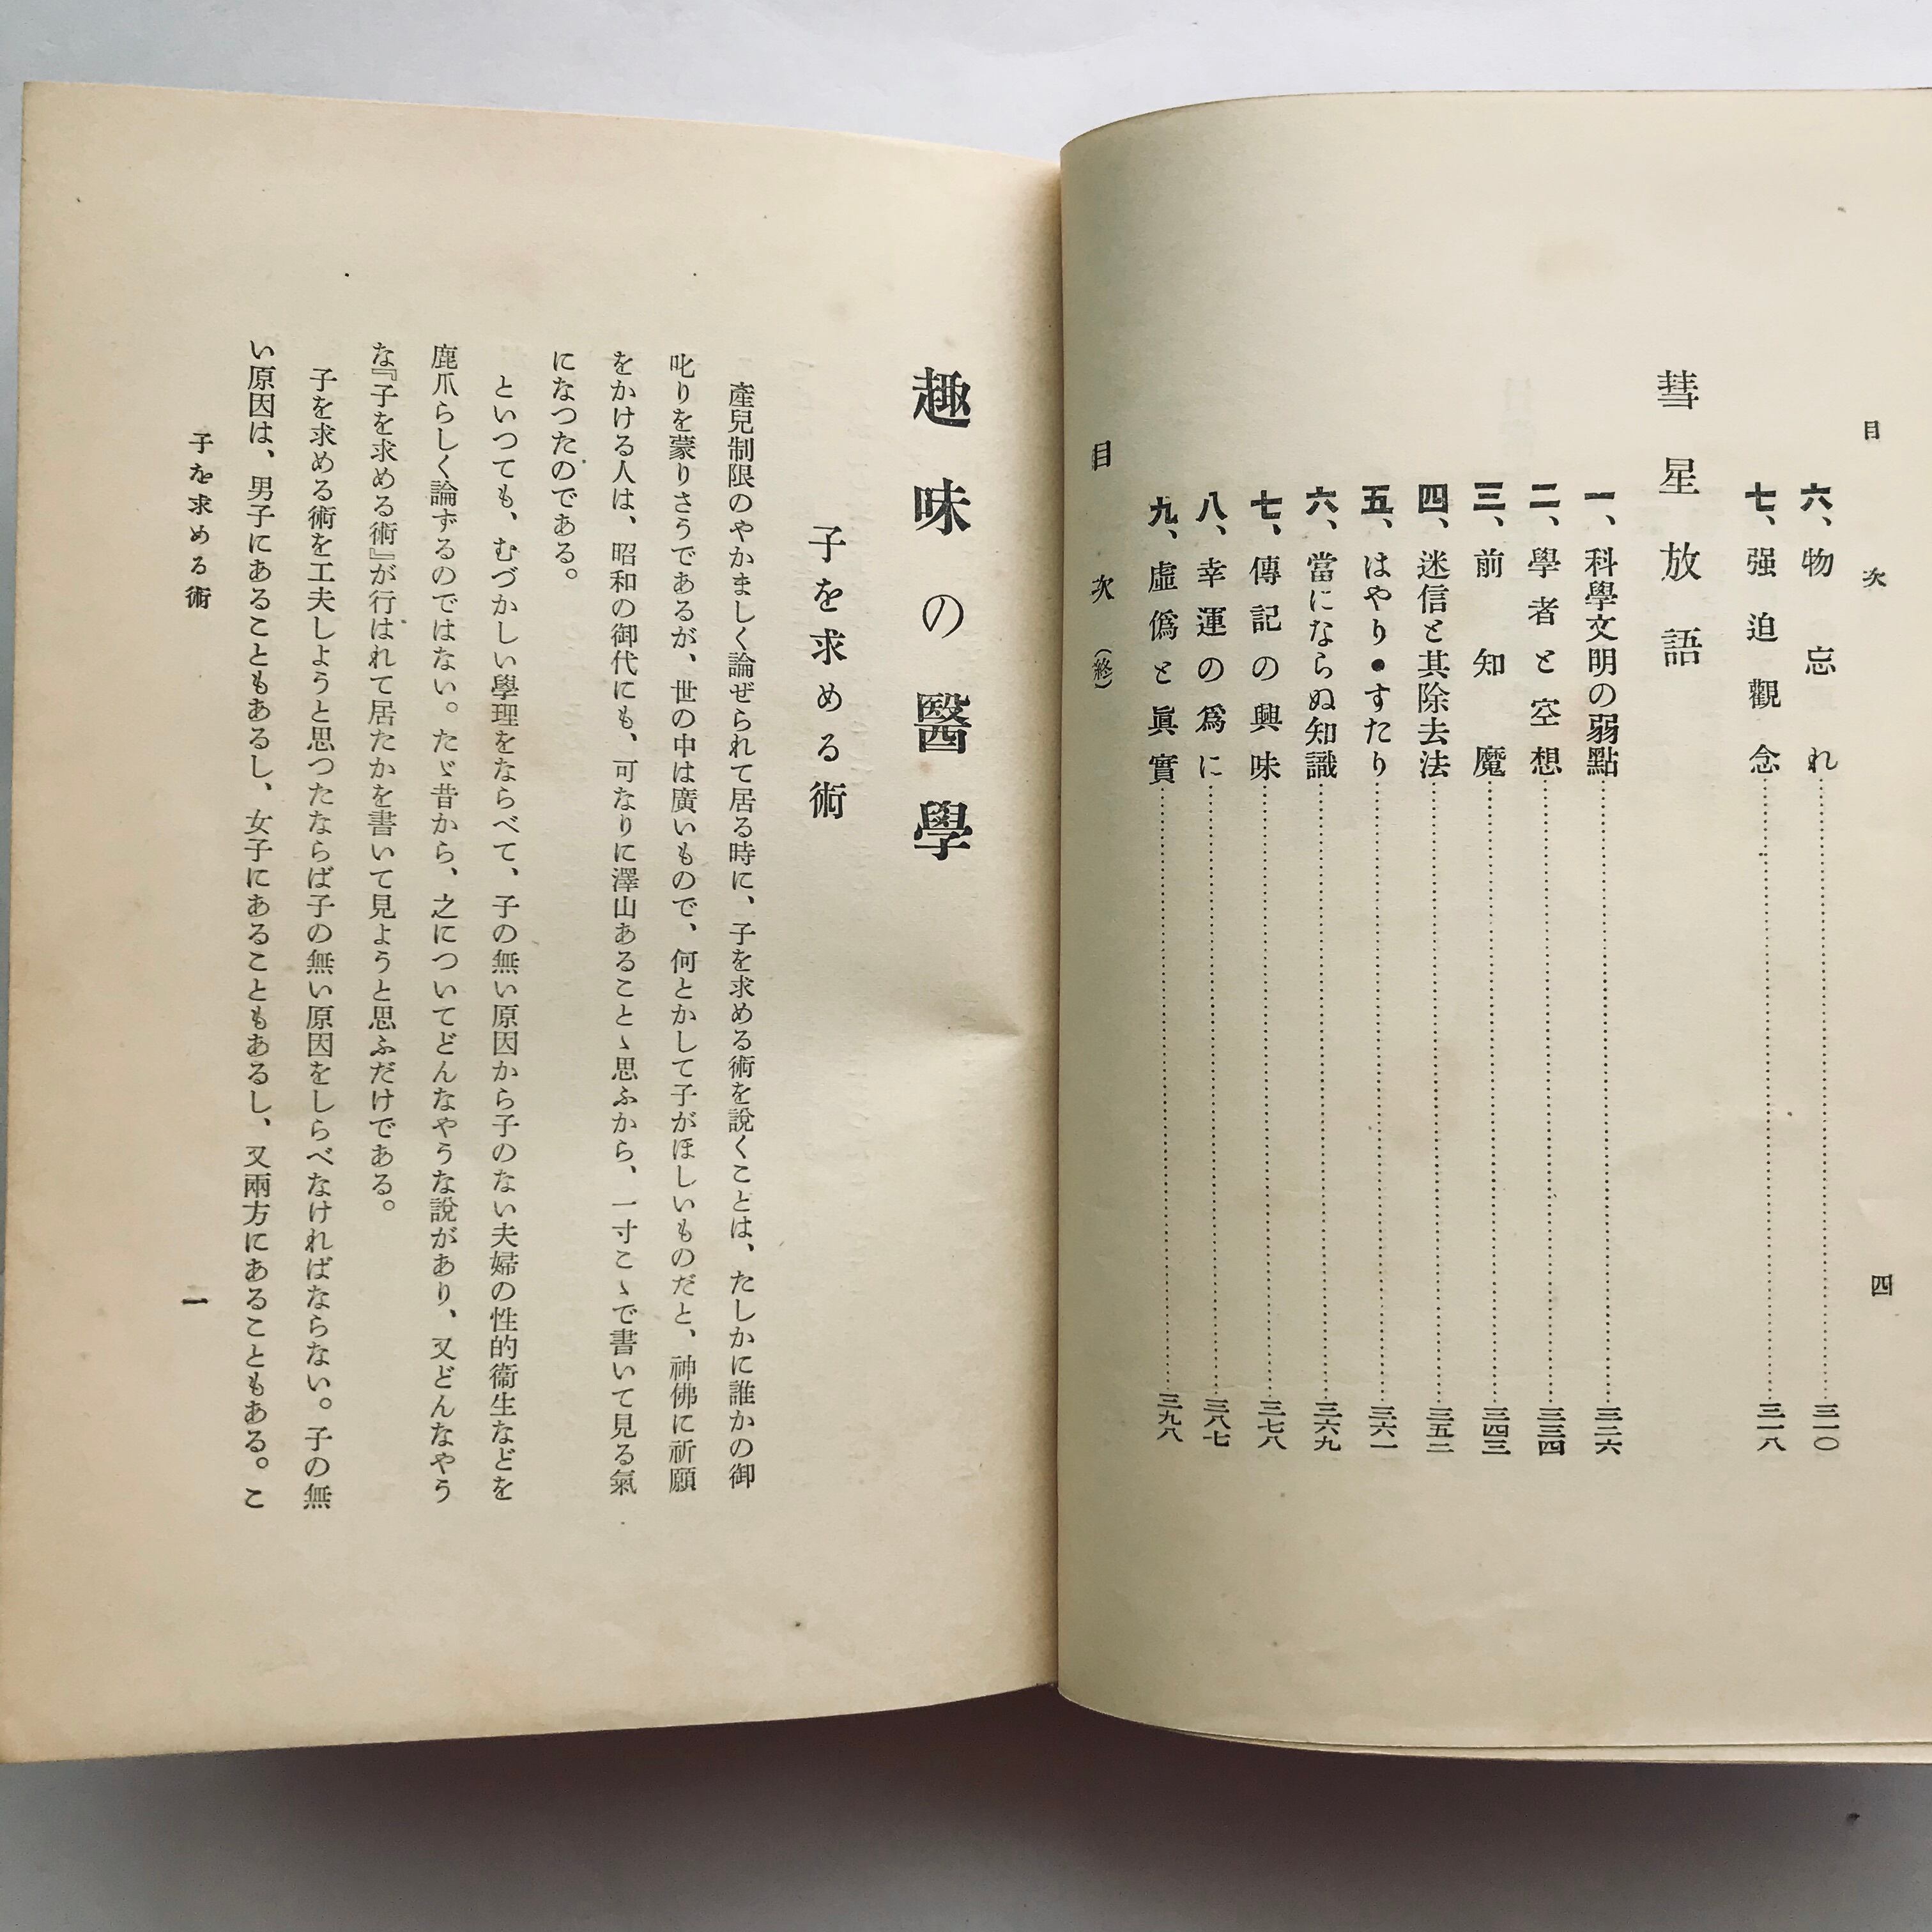 目次
四
六、物忘れ……三一〇
七、强迫觀念……三一八
彗星放語
一、科學文明の弱點……三二六
二、學者と空想……三三四
三、前知魔……三四三
四、迷信と其除去法……三五二
五、はやり●すたり……三六一
六、當にならぬ知識……三六九
七、傳記の興味……三七八
八、幸運の爲に……三八七
九、虛僞と眞實……三九八
目次（終）
趣味の醫學
子を求める術
產兒制限のやかましく論ぜられて居る時に、子を求める術を說くことは、たしかに誰かの御
叱りを蒙りさうであるが、世の中は廣いもので、何とかして子がほしいものだと、神佛に祈願
をかける人は、昭和の御代にも、可なりに澤山あることゝ思ふから、一寸こゝで書いて見る氣
になつたのである。
といつても、むづかしい學理をならべて、子の無い原因から子のない夫婦の性的衞生などを
鹿爪らしく論ずるのではない。たゞ昔から、之についてどんなやうな說があり、又どんなやう
な『子を求める術』が行はれて居たかを書いて見ようと思ふだけである。
子を求める術を工夫しようと思つたならば子の無い原因をしらべなければならない。子の無
い原因は、男子にあることもあるし、女子にあることもあるし、又兩方にあることもある。こ
子を求める術
一